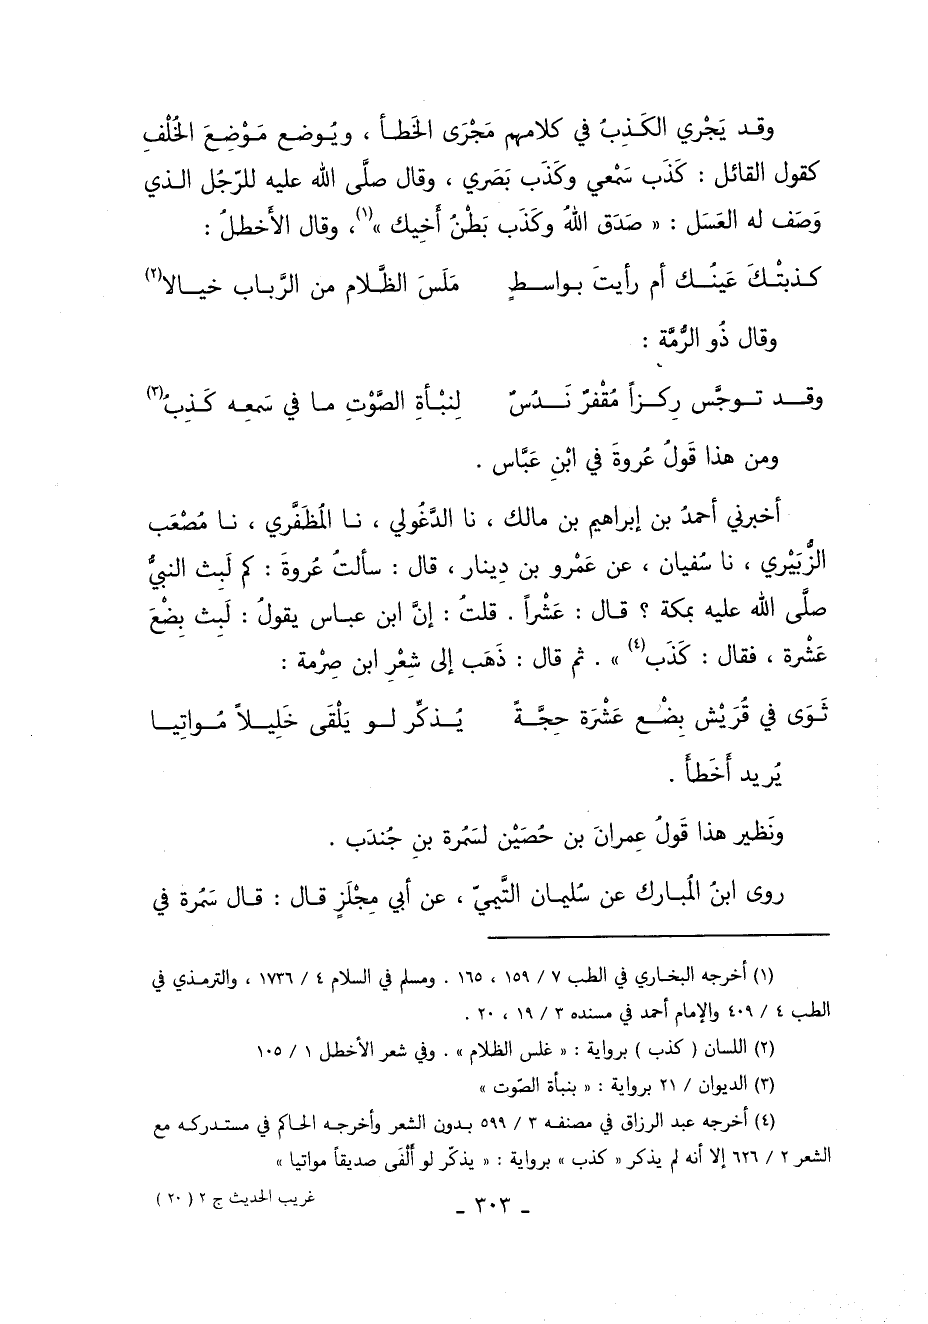 وقـد يَجْري الكَـذِبُ في كلامهم مَجْرَى الخَطـأ ، ويُـوضـع مَـوْضِعَ الخُلْفِ
كقول القائل : كَذَب سَمْعي وكَذَب بَصَري ، وقال صلَّى الله عليه للرّجُل الـذي
وَصَف له العَسَل : « صَدَق اللهُ وكَذَب بَطْنُ أخيك »(١)، وقال الأخطلُ :
كـذبتْـكَ عَينُـك أم رأيتَ بـواسـطٍ مَلَسَ الظَّلام من الرَّباب خيـالا(٢)
وقال ذُو الرُّمَّة :
وقـد تـوجَّس رِكـزاً مُقْفرٌ نَـدُسٌ لِنبْـأةِ الصَّوْتِ مـا في سَمِعـه كَـذِبُ(٣)
ومن هذا قَولُ عُروةَ في ابْنِ عَبَّاس .
أخبرني أحمدُ بن إبراهيم بن مالك ، نا الدَّغُولي ، نـا المُظَفَّري ، نـا مُصْعَب
الزُّبَيْري ، نا سُفيان ، عن عَمْرو بن دِينار ، قال : سألتُ عُروةَ : كم لَبِث النبيُّ
صلَّى الله عليه بمكة ؟ قـال : عَشْراً . قلتُ : إنَّ ابن عبـاس يقولُ : لَبِث بِضْعَ
عَشْرة ، فقال : كَذَب(٤) » . ثم قال : ذَهَب إلى شِعْرِ ابن صِرْمة :
ثَـوَى في قُرَيْش بِضْـع عَشْرَة حِجَّـةً يُـذكِّر لـو يَلْقَى خَلِيـلاً مُـواتِيـا
يُريد أَخَطأَ .
ونَظير هذا قَولُ عِمرانَ بن حُصَيْن لسَمُرة بنِ جُندَب .
روى ابنُ المُبارك عن سُليمان التَّيميّ ، عن أبي مِجْلَزٍ قـال : قـال سَمُرة في
(١) أخرجه البخـاري في الطب ٧ / ١٥٩ ، ١٦٥ . ومسلم في السلام ٤ / ١٧٣٦ ، والترمـذي في
الطب ٤ / ٤٠٩ والإمام أحمد في مسنده ٣ / ١٩ ، ٢٠ .
(٢) اللسان ( كذب ) برواية : « غلس الظلام » . وفي شعر الأخطل ١ / ١٠٥
(٣) الديوان / ٢١ برواية : « بنبأة الصّوت »
(٤) أخرجه عبد الرزاق في مصنفـه ٣ / ٥٩٩ بـدون الشعر وأخرجـه الحـاكم في مستـدركـه مع
الشعر ٢ / ٦٢٦ إلا أنه لم يذكر « كذب » برواية : « يذكّر لو أَلْفَى صديقاً مواتيا »
ـ ٣٠٣ ـ
غريب الحديث ج ٢ ( ٢٠ )